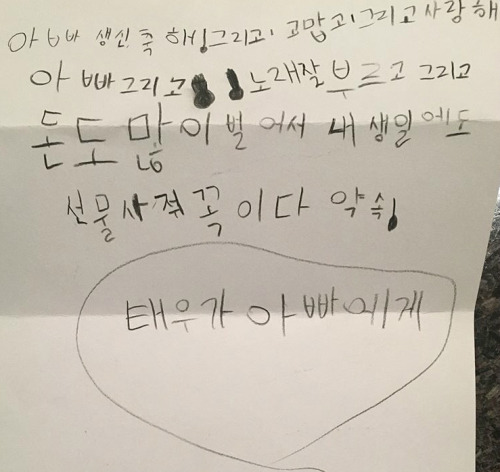 아빠 생신 축해! 그리고! 고맙고! 그리고 사랑해
아빠 그리고 노래잘 부르고 그리고
돈도 많이 벌어서 내 생일에도
선물사줘 꼭이다 약속!
태우가 아빠에게